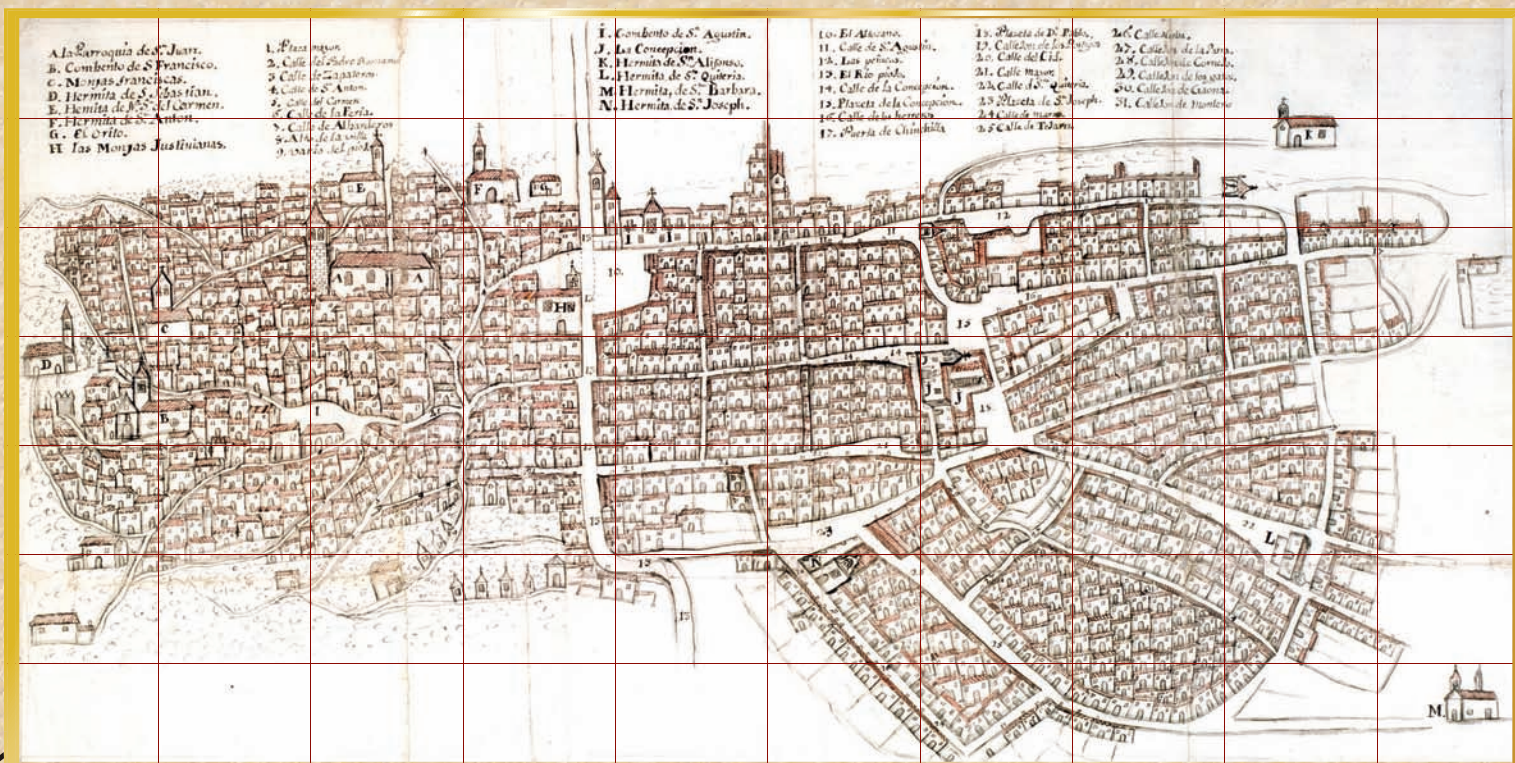 A la Parroquia de Sn. Juan.
B. Combento de S Francisco.
C. Monjas franciscas.
D. Hermita de S. Sebastian.
E. Hemita de Na. Sa. del Carmen.
F. Hermita de S. Anton.
G. El Orito.
H las Monjas Justinianas.
1. Plaza mayor
2. Calle del Padre
3 Calle de Zapateros
4. Calle de S. Anton.
5. Calle del Carmen
6. Calle de la Feria.
7. Calle de Albarderos
8. Alto de la villa
9. Vario del
I. Combento de Sn. Agustin.
J. La Concepcion.
K. Hermita de Sn. Alifonso.
L. Hermita de Sa. Quiteria.
M. Hermita, de Sa. Barbara.
N. Hermita de Sn. Joseph.
10. El Altozano.
11. Calle de Sn. Agustin.
12. Las peñicas.
13. El Rio piojo
14. Calle de la Concepcion.
15. Plazeta de la Concepcion.
16. Calle de los herreros
17. Puerta de Chinchilla
18. Plazeta de Dn. Pablo.
19. Callejon de los
20. Calle del Cid.
21. Calle mayor
22. Calle de Sa. Quiteria.
23 Plazeta de Sn. Joseph.
24 Calle de
25 Calle de
26. Calle
27. Callejon de la
28. Callejon de Cornejo.
29. Callejon de los gatos.
30. Callejon de Gaona.
31. Callejon de Montero
K
E
F
G
I I
12
11
10.
A A
H
C
15
D
J
14 14
J J
B
1
18
21
22
L
23
13
N
13
13
M.